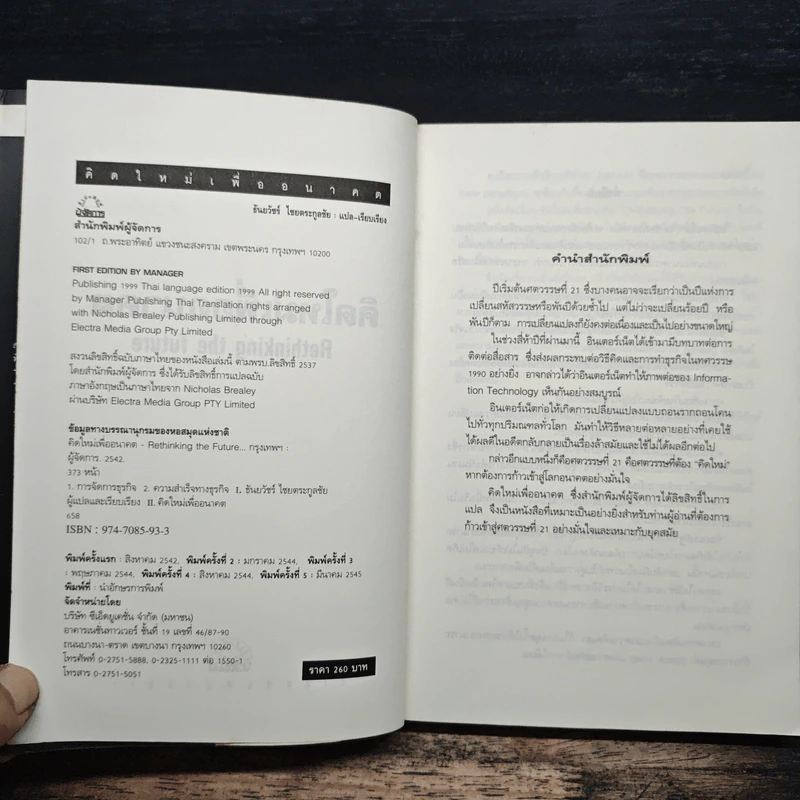 คิดใหม่เพื่ออนาคต
ธันยวัชร์ ไชยตระกูลชัย : แปล-เรียบเรียง
ผู้จัดการ
สำนักพิมพ์ผู้จัดการ
102/1 ถ.พระอาทิตย์ แขวงชนะสงคราม เขตพระนคร กรุงเทพฯ 10200
FIRST EDITION BY MANAGER
Publishing 1999 Thai language edition 1999 All right reserved
by Manager Publishing Thai Translation rights arranged
with Nicholas Brealey Publishing Limited through
Electra Media Group Pty Limited
สงวนลิขสิทธิ์ฉบับภาษาไทยของหนังสือเล่มนี้ ตามพรบ.ลิขสิทธิ์ 2537
โดยสำนักพิมพ์ผู้จัดการ ซึ่งได้รับลิขสิทธิ์การแปลฉบับ
ภาษาอังกฤษเป็นภาษาไทยจาก Nicholas Brealey
ผ่านบริษัท Electra Media Group PTY Limited
ข้อมูลทางบรรณานุกรมของหอสมุดแห่งชาติ
คิดใหม่เพื่ออนาคต - Rethinking the Future... กรุงเทพฯ :
ผู้จัดการ. 2542.
373 หน้า
1. การจัดการธุรกิจ 2. ความสำเร็จทางธุรกิจ I. ธันยวัชร์ ไชยตระกูลชัย
ผู้แปลและเรียบเรียง II. คิดใหม่เพื่ออนาคต
658
ISBN : 974-7085-93-3
พิมพ์ครั้งแรก : สิงหาคม 2542, พิมพ์ครั้งที่ 2 : มกราคม 2544, พิมพ์ครั้งที่ 3
: พฤษภาคม 2544, พิมพ์ครั้งที่ 4 : สิงหาคม 2544, พิมพ์ครั้งที่ 5 : มีนาคม 2545
พิมพ์ที่ : นำอักษรการพิมพ์
จัดจำหน่ายโดย
บริษัท ซีเอ็ดยูเคชั่น จำกัด (มหาชน)
อาคารเนชั่นทาวเวอร์ ชั้นที่ 19 เลขที่ 46/87-90
ถนนบางนา-ตราด เขตบางนา กรุงเทพฯ 10260
โทรศัพท์ 0-2751-5888, 0-2325-1111 ต่อ 1550-1
โทรสาร 0-2751-5051
ราคา 260 บาท
คำนำสำนักพิมพ์
ปีเริ่มต้นศตวรรษที่ 21 ซึ่งบางคนอาจจะเรียกว่าเป็นปีแห่งการ
เปลี่ยนสหัสวรรษหรือพันปีด้วยซ้ำไป แต่ไม่ว่าจะเปลี่ยนร้อยปี หรือ
พันปีก็ตาม การเปลี่ยนแปลงก็ยังคงต่อเนื่องและเป็นไปอย่างขนาดใหญ่
ในช่วงสี่ห้าปีที่ผ่านมานี้ อินเตอร์เน็ตได้เข้ามามีบทบาทต่อการ
ติดต่อสื่อสาร ซึ่งส่งผลกระทบต่อวิธีคิดและการทำธุรกิจในทศวรรษ
1990 อย่างยิ่ง อาจกล่าวได้ว่าอินเตอร์เน็ตทำให้ภาพต่อของ Informa-
tion Technology เห็นกันอย่างสมบูรณ์
อินเตอร์เน็ตก่อให้เกิดการเปลี่ยนแปลงแบบถอนรากถอนโคน
ไปทั่วทุกปริมณฑลทั่วโลก มันทำให้วิธีหลายต่อหลายอย่างที่เคยใช้
ได้ผลดีในอดีตกลับกลายเป็นเรื่องล้าสมัยและใช้ไม่ได้ผลอีกต่อไป
กล่าวอีกแบบหนึ่งก็คือศตวรรษที่ 21 คือศตวรรษที่ต้อง "คิดใหม่"
หากต้องการก้าวเข้าสู่โลกอนาคตอย่างมั่นใจ
คิดใหม่เพื่ออนาคต ซึ่งสำนักพิมพ์ผู้จัดการได้ลิขสิทธิ์ในการ
แปล จึงเป็นหนังสือที่เหมาะเป็นอย่างยิ่งสำหรับท่านผู้อ่านที่ต้องการ
ก้าวเข้าสู่ศตวรรษที่ 21 อย่างมั่นใจและเหมาะกับยุคสมัย